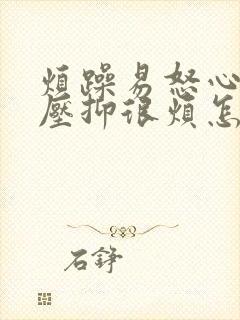 煩躁易怒心
壓抑很煩怎
石錚